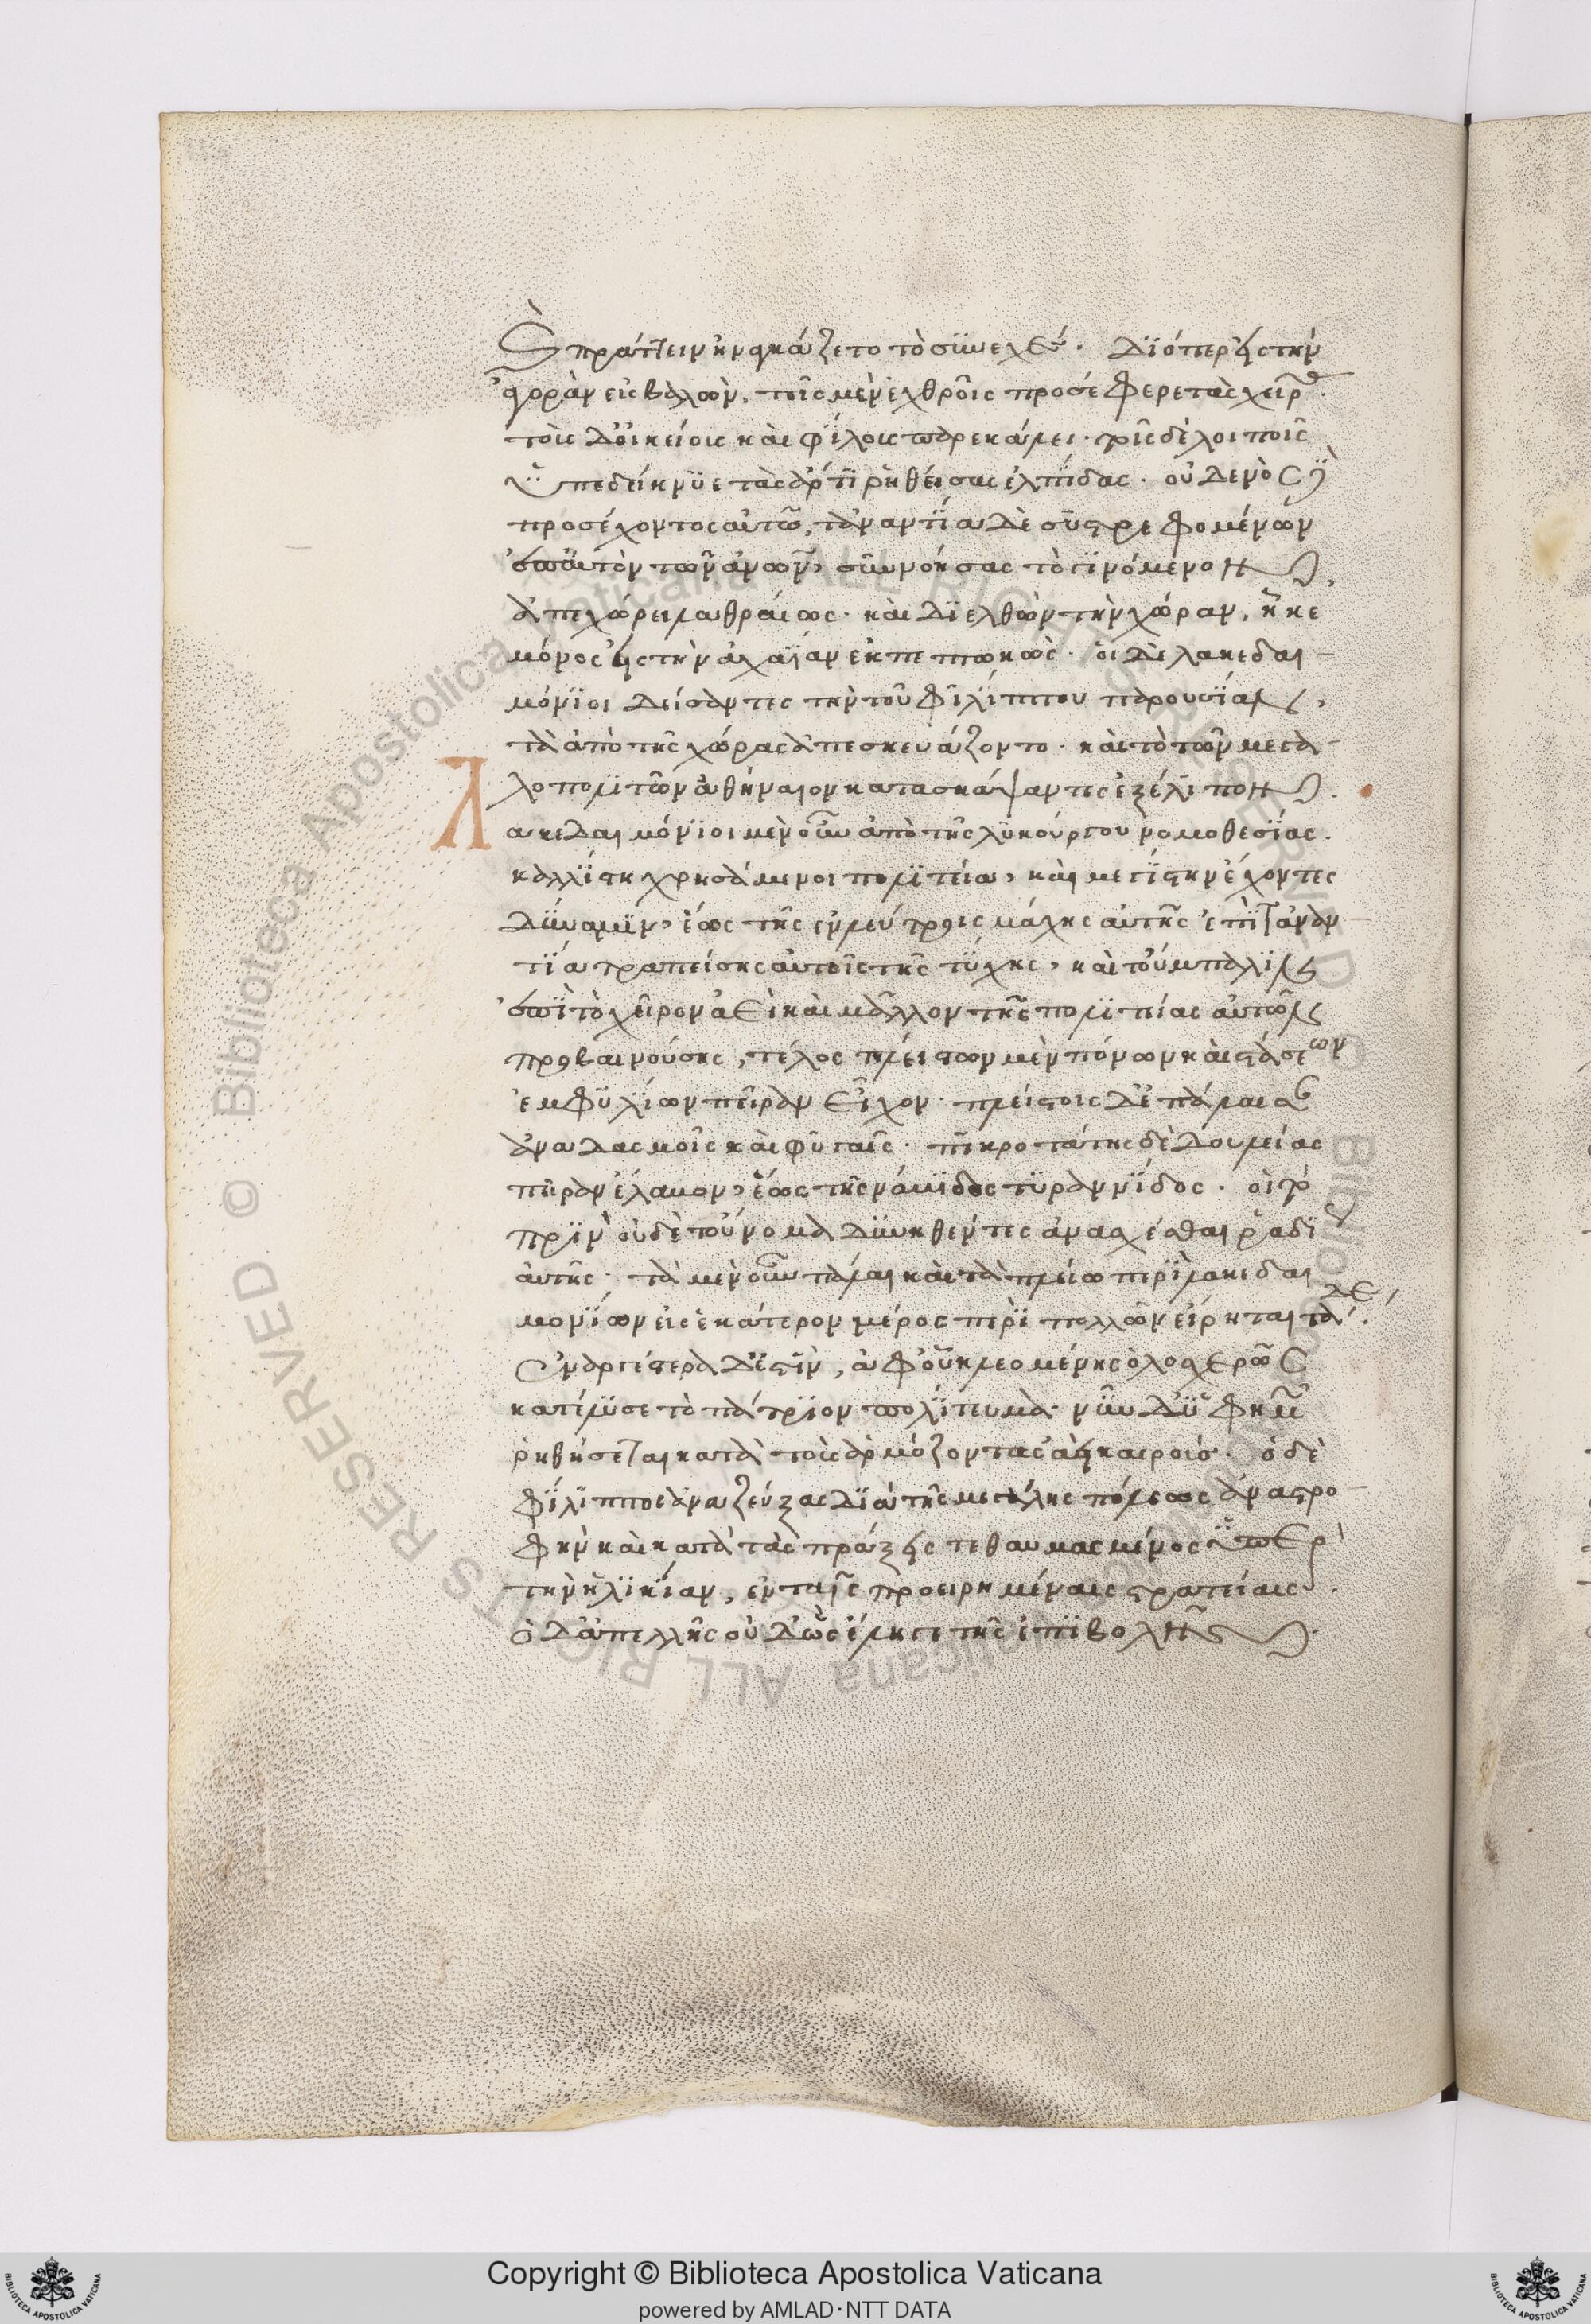 πράττειν ἠναγκάζετο τὸ συνεχές. διόπερ εἰς τὴν
ἀγορὰν εἰσβαλὼν, τοῖς μὲν ἐχθροῖς προσέφερε τὰς χεῖρας.
τοῖς δ' οἰκείοις καὶ φίλοις παρεκάλει. τοῖς δὲ λοιποῖς
ὑπεδείκνυε τὰς ἄρτι ῥηθείσας ἐλπίδας. οὐδενὸς
προσέχοντος αὐτῶ, τἀναντία δὲ συστρεφομένων
ἐπ' αὐτὸν τῶν ἀνων, συννοήσας τὸ γινόμενον,
ἀπεχώρει λαθραίως. καὶ διελθὼν τὴν χώραν, ἧκε
μόνος εἰς τὴν ἀχαΐαν ἐκπεπτωκώς. οἱ δὲ λακεδαι-
μόνιοι δείσαντες τὴν τοῦ φιλίππου παρουσίαν,
τὰ ἀπὸ τῆς χώρας ἀπεσκευάζοντο. καὶ τὸ τῶν μεγα-
λοπολιτῶν ἀθήναιον κατασκάψαντες ἐξέλιπον.
Λακεδαιμόνιοι μὲν οὖν ἀπὸ τῆς λυκούργου νομοθεσίας.
καλλίστη χρησάμενοι πολιτεία, καὶ μεγίστην ἔχοντες
δύναμιν, ἕως τῆς ἐν λεύκτροις μάχης αὐτῆς ἐπὶ τἀναν
τία τραπείσης αὐτοῖς τῆς τύχης, καὶ τοὔμπαλιν
ἐπὶ τὸ χεῖρον ἀεὶ καὶ μᾶλλον τῆς πολιτείας αὐτῶν
προβαινούσης, τέλος πλείστων μὲν πόνων καὶ στάσεων
ἐμφυλίων πεῖραν εἶχον. πλείστοις δ' ἐπάλαισαν
ἀναδασμοῖς καὶ φυγαῖς. πικροτάτης δὲ δουλείας
πεῖραν ἔλαβον, ἕως τῆς νάβιδος τυραννίδος. οἱ τὸ
πρὶν οὐδὲ τοὔνομα δυνηθέντες ἀνασχέσθαι ῥαδί
αὐτῆς. τὰ μὲν οὖν πάλαι καὶ τὰ πλείω περὶ λακεδαι
μονίων εἰς ἑκάτερον μέρος περὶ πολλῶν εἴρηται τὰ δὲ.
ἐναργέστερα δ' ἐστὶν, ἀφ' οὗ κλεομένης ὁλοσχερῶς
κατέλυσε τὸ πάτριον πολίτευμα. νῦν δ' ὑφ' ἡμῶν
ῥηθήσεται κατὰ τοὺς ἁρμόζοντας ἀεὶ καιρούς. ὁ δὲ
φίλιππος ἀναζεύξας διὰ τῆς μεγάλης πόλεως ἀναστρο
φὴν καὶ κατὰ τὰς πράξεις τεθαυμασμένος ὑπὲρ
τὴν ἡλικίαν, ἐν ταῖς προειρημέναις στρατείαις.
ὁ δ' ἀπελλῆς οὐδ' ὣς ἔληγε τῆς ἐπιβολῆς.
Copyright © Biblioteca Apostolica Vaticana
powered by AMLAD·NTT DATA